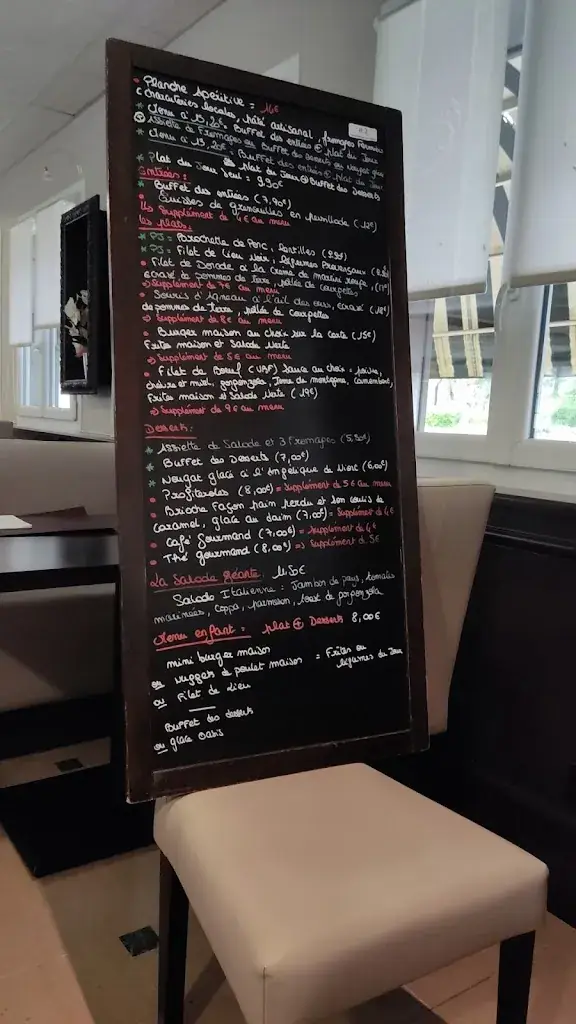 • Planche Apéritive = 14€
(charcuteries locales, pâté artisanal, fromages
* Menu à 15,20€ Buffet des entrées ⊕ plat du Jour
⊕ Assiette de Fromages ou Buffet des Desserts ou Nougat glacé
* Menu à 13,20€ : Buffet des entrées ⊕ plat du Jour
ou plat du Jour ⊕ Buffet des Desserts
* Plat du Jour seul = 9.30€
Entrées :
* Buffet des entrées (7,90€)
• Cuisses de grenouilles en persillade (12€)
↳ Supplément de 4€ au menu
Les plats :
* PJ = Brochette de Porc, lentilles
* PJ = Filet de Lieu Noir, légumes Provençaux
• Filet de Dorade à la crème de
écrasé de pommes de terre, poêlée de courgettes
⇒ Supplément de 7€ au menu
• Souris d'Agneau à l'ail des ours, écrasé (18€)
de pommes de terre, poêlée de courgettes
⇒ Supplément de 8€ au menu
• Burger maison au choix sur la carte (15€)
Frites maison et Salade Verte
⇒ Supplément de 5€ au menu
• Filet de Boeuf (VBF) Sauce au choix = poivre,
chèvre et miel, gorgonzola, Tome de montagne, camembert,
Frites maison et Salade Verte (19€)
⇒ Supplément de 9€ au menu
Desserts :
* Assiette de Salade et 3 Fromages (5,50€)
* Buffet des Desserts (7,00€)
* Nougat glacé à l'Angélique de Niort (6,00€)
• Profiteroles (8,00€) = Supplément de 5€ au menu
• Brioche Façon pain perdu et son coulis de
caramel, glace au daim (7,00€) = Supplément de 4€
• Café Gourmand (7,00€) = Supplément de 4€
• Thé gourmand (8,00€) => Supplément de 5€
La Salade Géante : 11.50€
Salade Italienne = Jambon de pays, tomates
marinées, coppa, parmesan, toast de gorgonzola
Menu enfant = plat ⊕ Desserts 8,00€
mini burger maison
ou Nuggets de poulet maison = Frites ou
légumes du Jour
ou Filet de Lieu
Buffet des desserts
ou glace Oasis